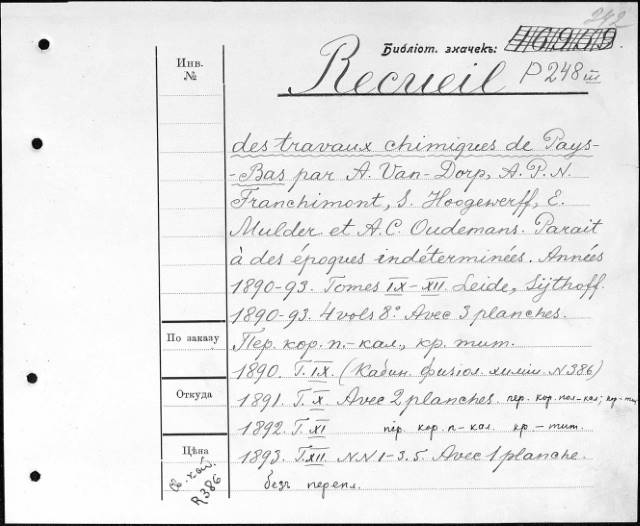 242
Библіот. значекъ: 16909
Инв.
№
Recueil P 248 III
des travaux chimiques de Pays-
-Bas par A. Van-Dorp, A. P. N.
Franchimont, S. Hoogewerff, E.
Mulder et A. C. Oudemans. Parait
à des époques indéterminées. Années
1890-93. Tomes IX-XII. Leide, Sijthoff.
1890-93. 4 vols 8° Avec 3 planches.
По заказу
Пер. кор. п.-кал., кр. тит.
1890. T. IX. (Кабин. физіол. химіи. N 386)
Откуда
1891. T. X. Avec 2 planches. пер. кор. пол-кал; кор-тит.
1892. T. XI пер. кор. п-кал. кр.-тит.
Цѣна
1893. T. XII. NN 1-3.5. Avec 1 planche.
безъ перепл.
R386